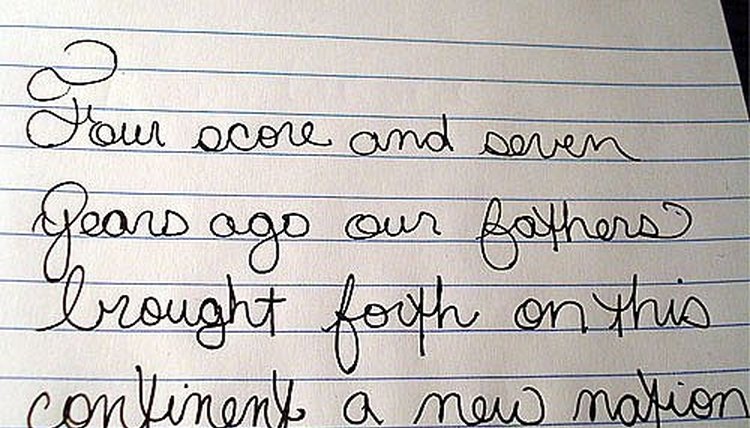 Four score and seven
years ago our fathers
brought forth on this
continent a new nation